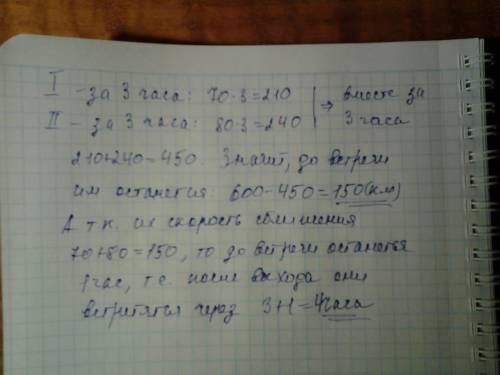 I - за 3 часа: 70·3=210 | ⇒ вместе за
II - за 3 часа: 80·3=240 | 3 часа
210+240=450. Значит, до встречи
им останется: 600-450=150(км)
А т.к. их скорость сближения
70+80=150, то до встречи останется
1 час, т.е. после выхода они
встретятся через 3+1=4часа